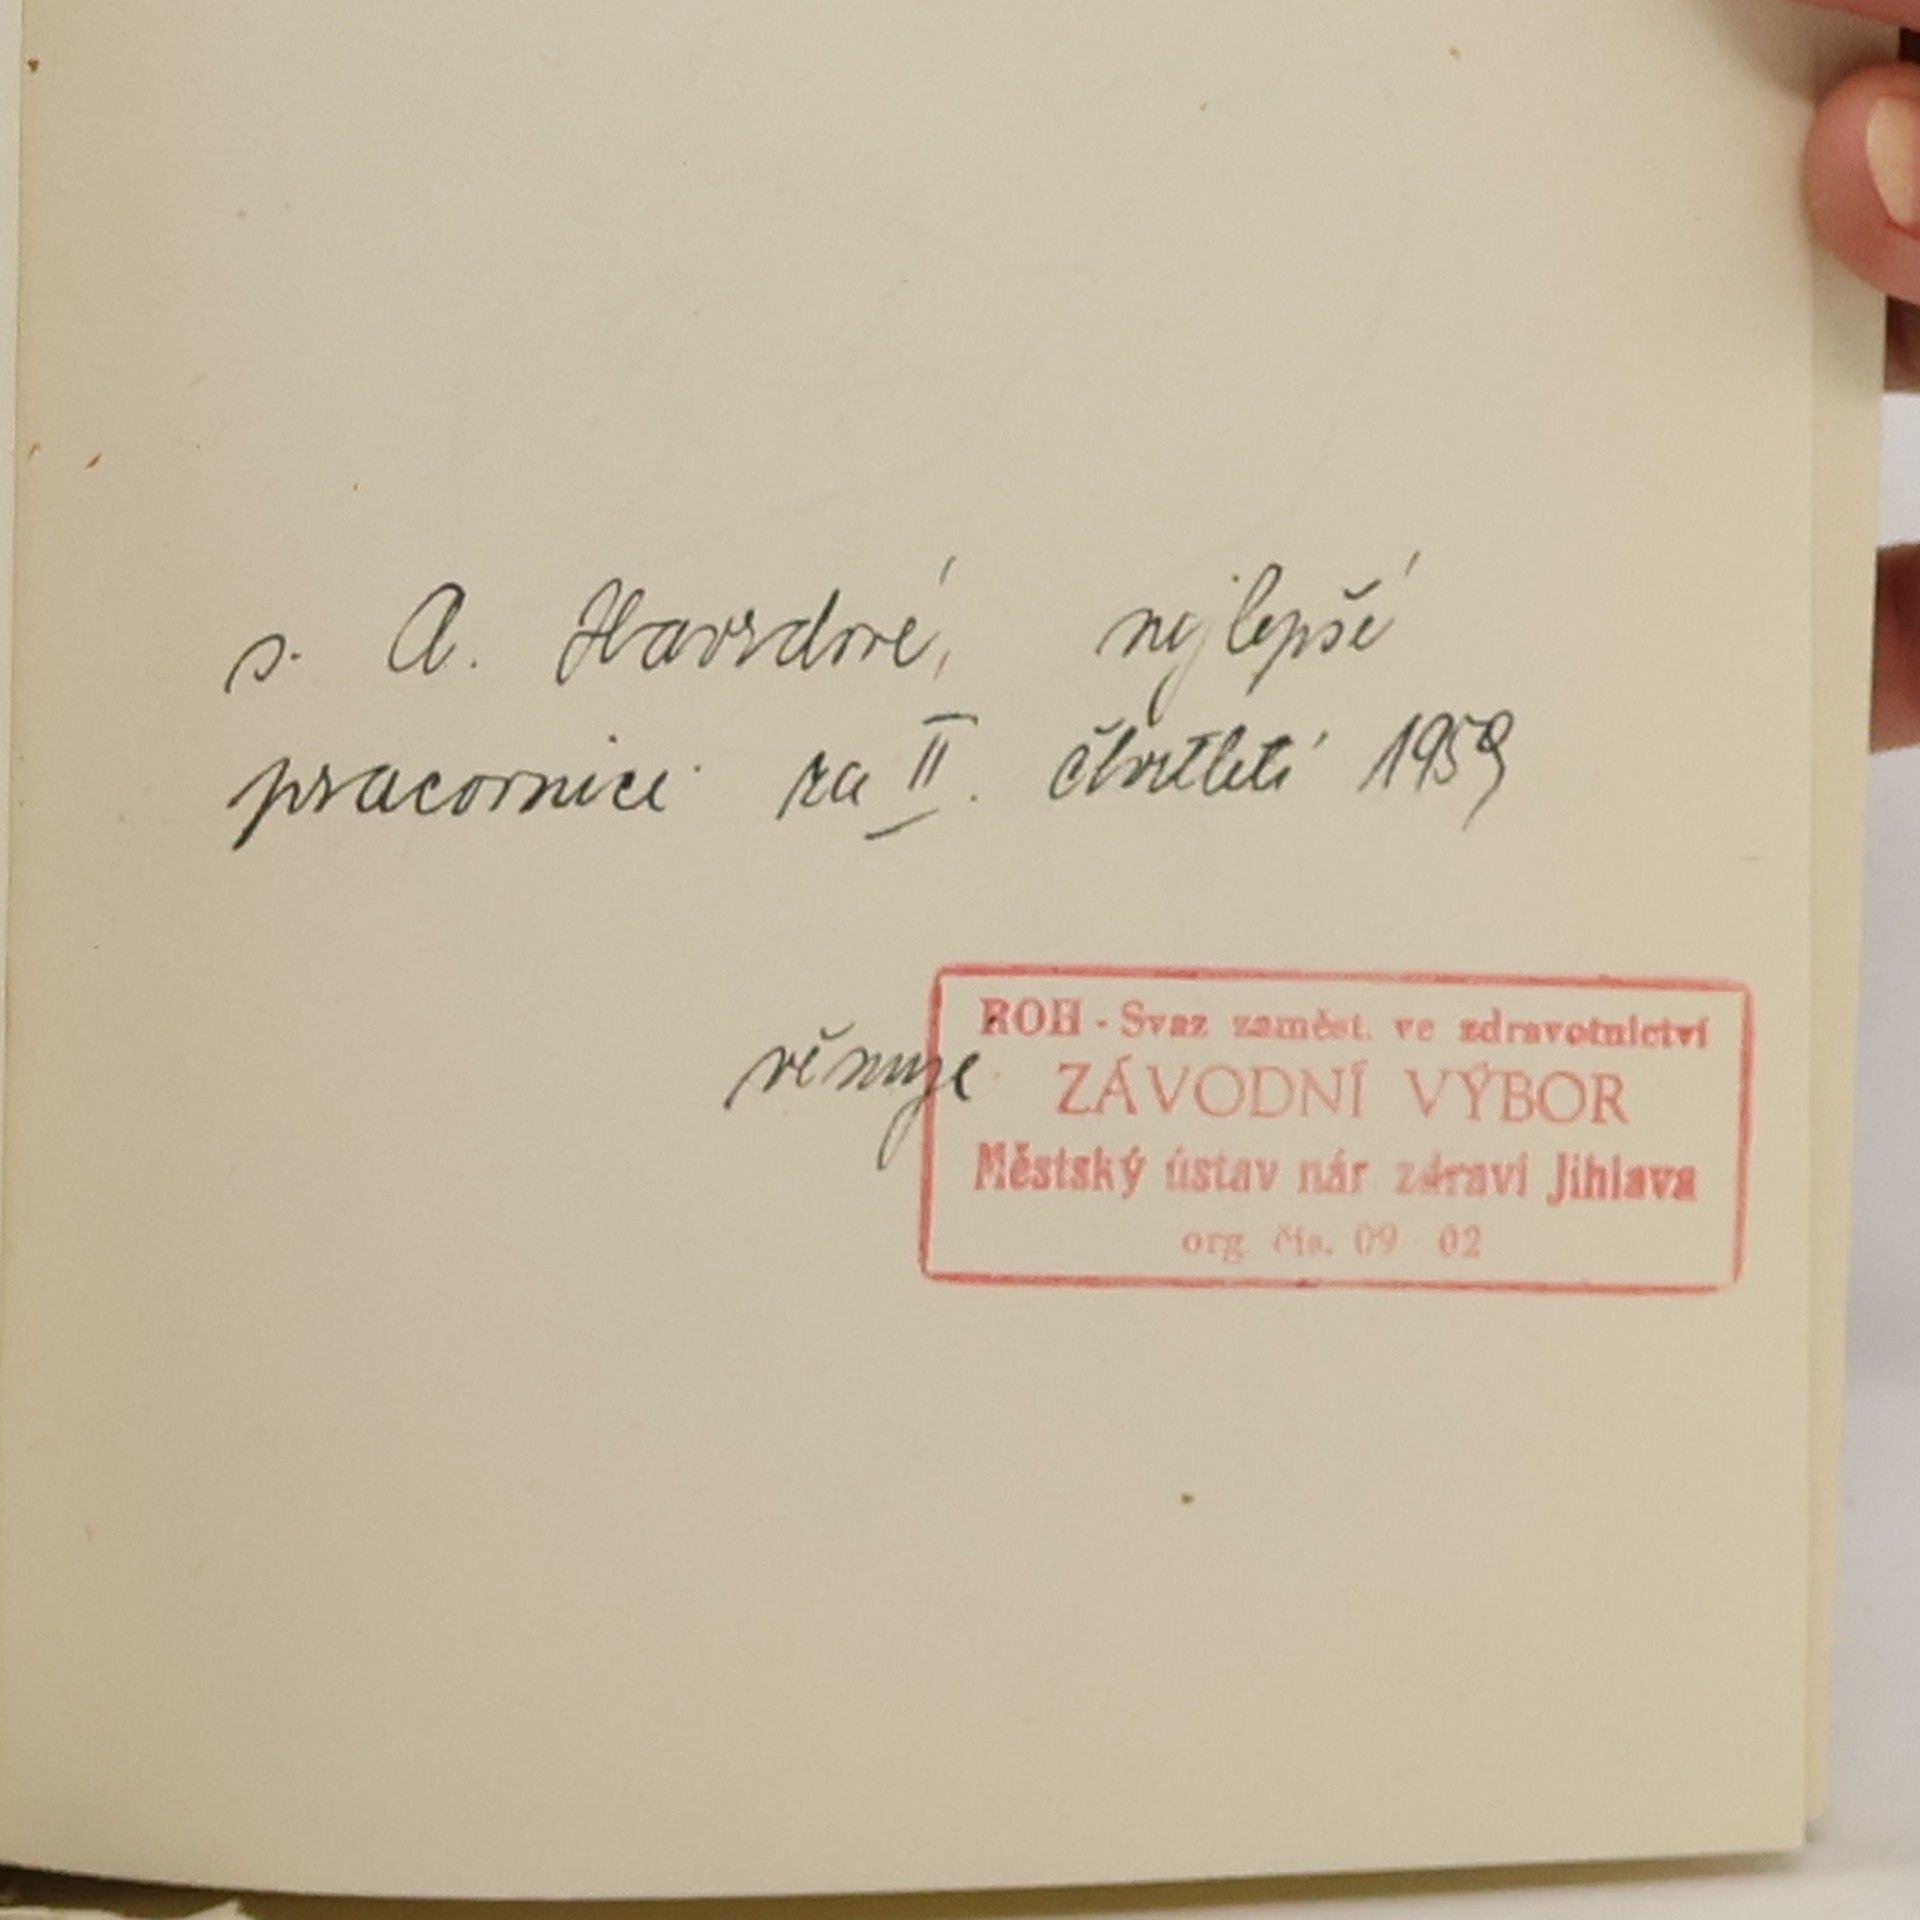 s. A. Havrdové, nejlepší
pracovnici za II. čtvrtletí 1959
věnuje
ROH - Svaz zaměst. ve zdravotnictví
ZÁVODNÍ VÝBOR
Městský ústav nár zdraví Jihlava
org čís. 09 02